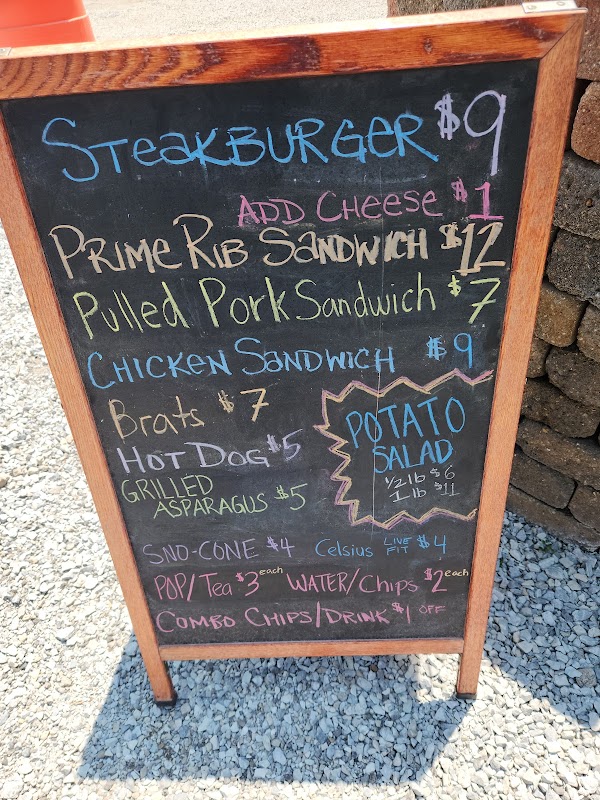 STEAKBURGER $9
ADD CHEESE $1
PRIME RIB SANDWICH $12
Pulled Pork Sandwich $7
CHICKEN SANDWICH $9
Brats $7
HOT DOG $5
GRILLED
ASPARAGUS $5
POTATO
SALAD
1/2 lb $6
1 lb $11
SNO-CONE $4 Celsius LIVE FIT $4
POP/Tea $3 each WATER/Chips $2 each
COMBO CHIPS/DRINK $1 OFF